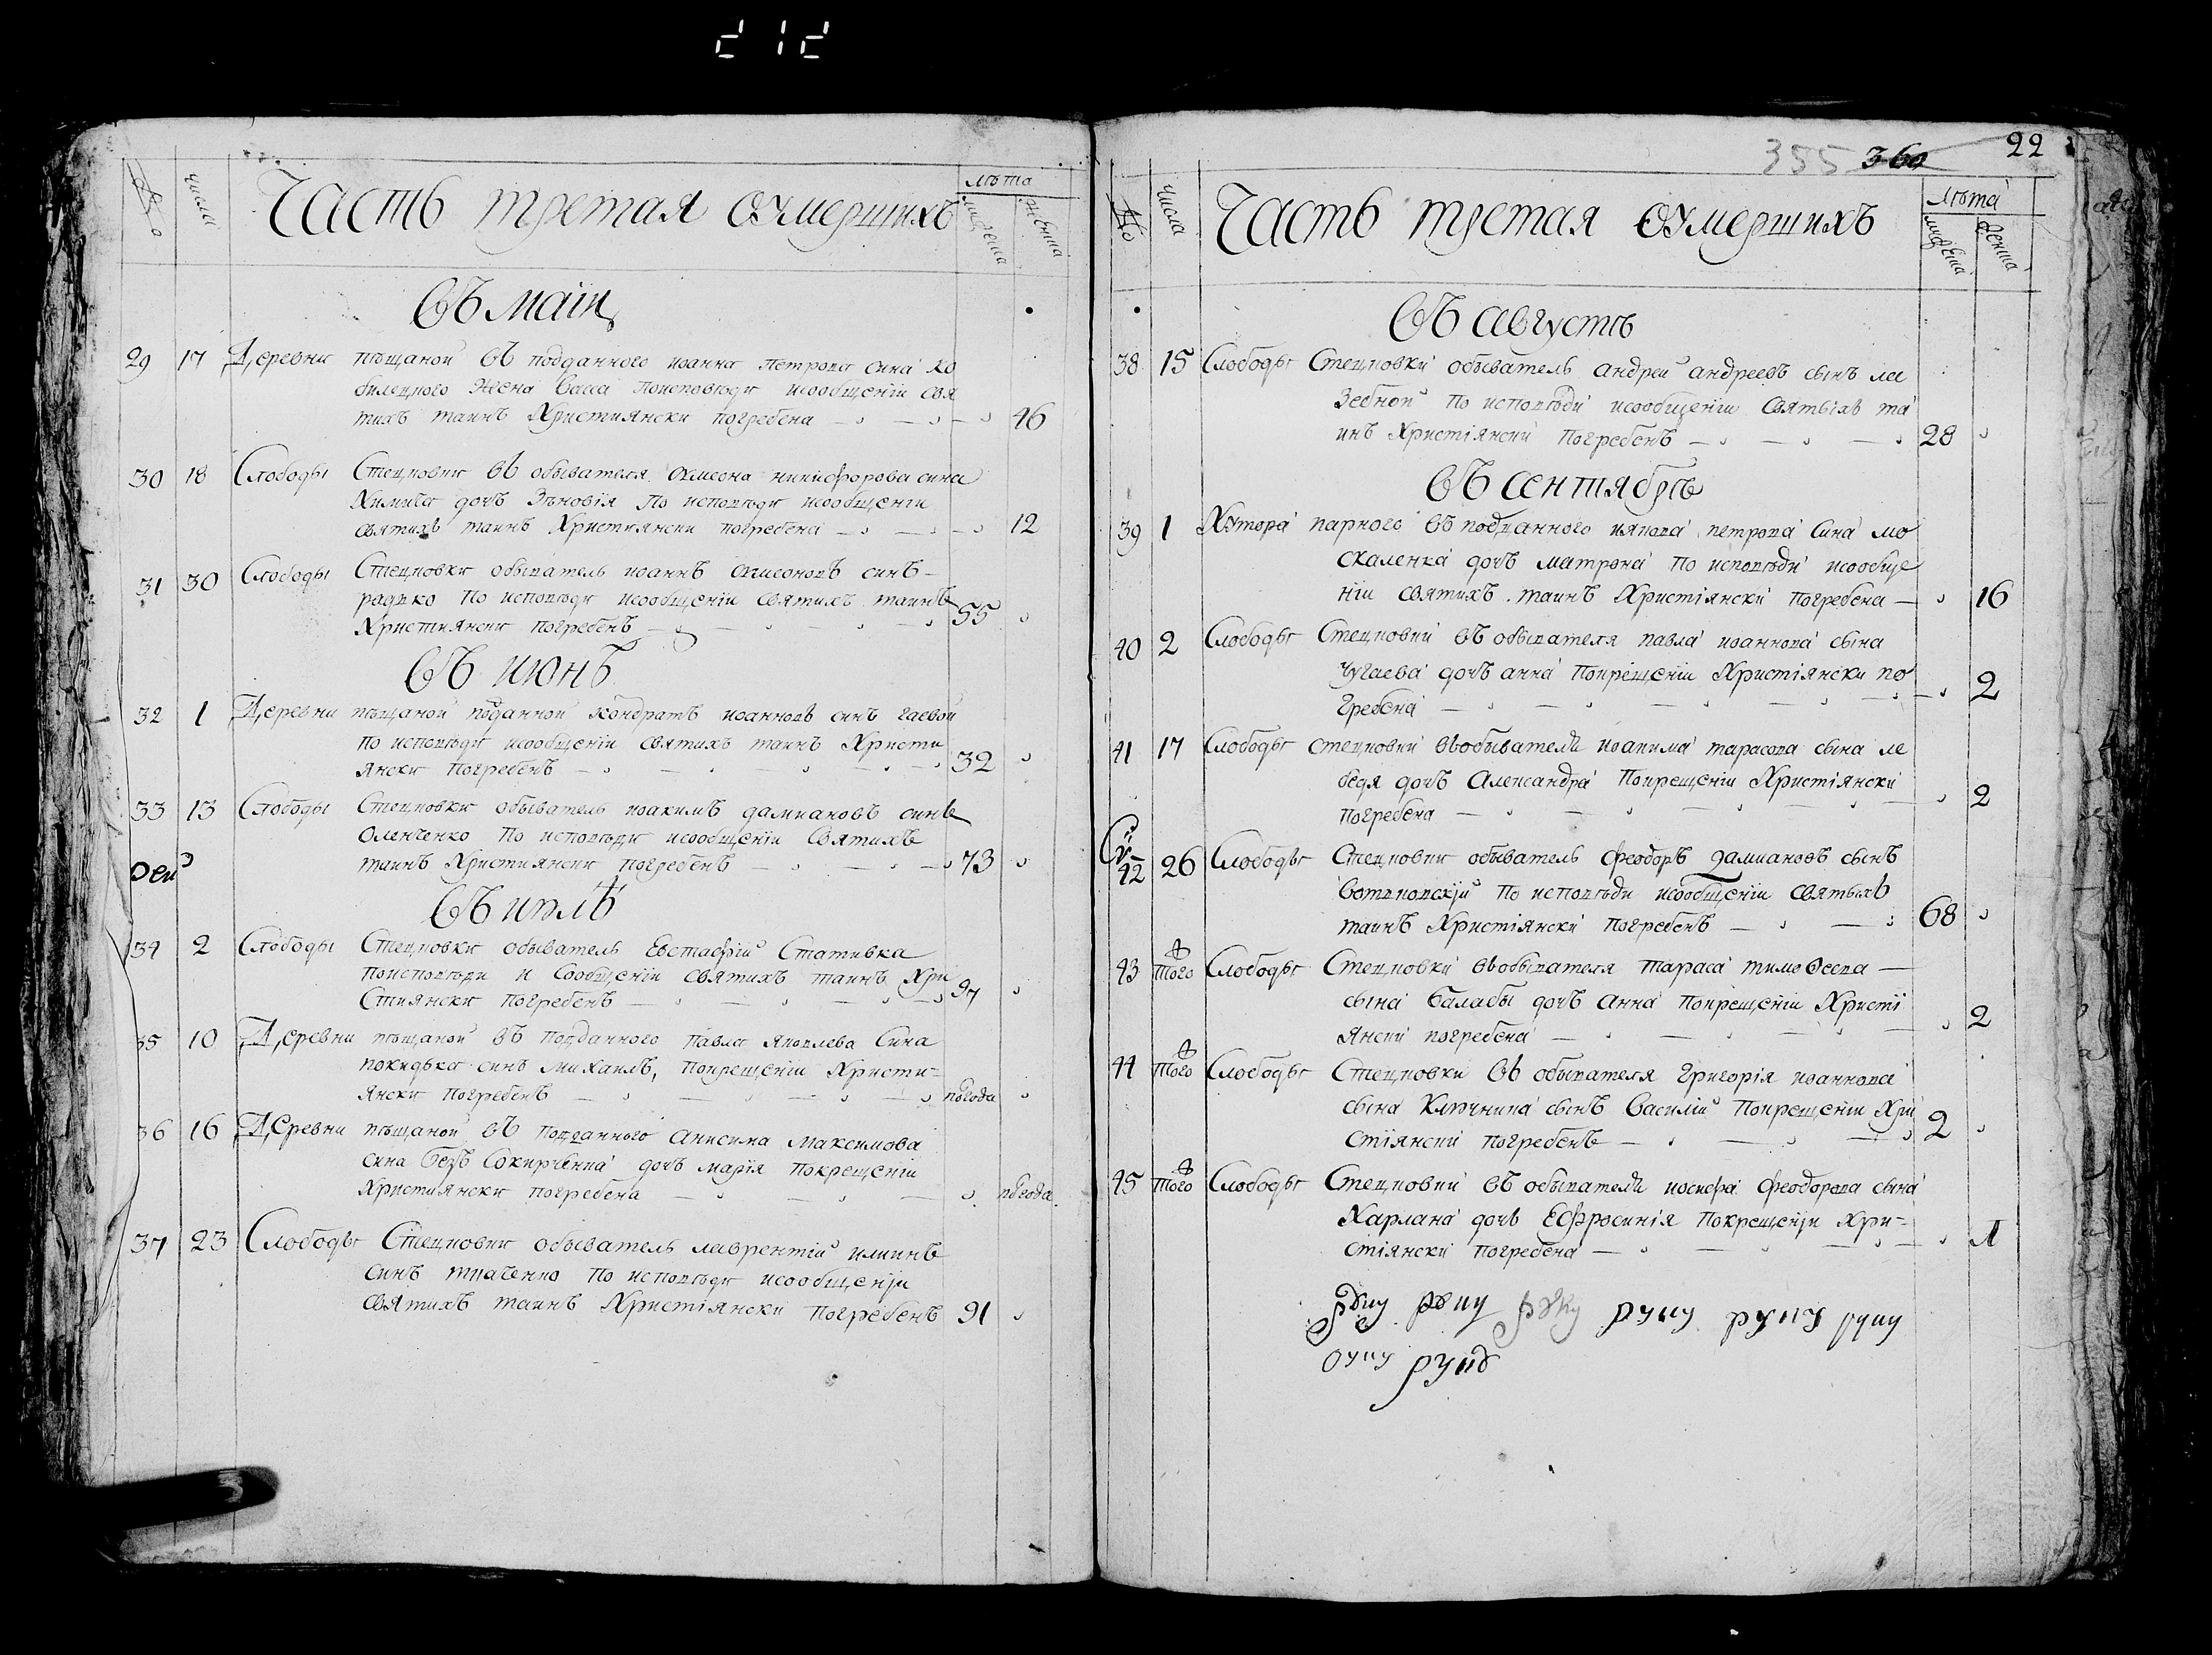 212
№ числа Часть третая оумершихъ лѣта
мужеска женска
Въ маiи
29 17 Деревни пѣщаной въ подданного иоанна петрова сина ко
билецкого жена Васса поисповѣди исообщенiи свя
тихъ таинъ Християнски погребена 46
30 18 Слободы Стецковки въ обывателя сѵмеона никифорова сина
Химича дочъ Зѣновiя По исповѣди исообщенiи
святихъ таинъ Християнски погребена 12
31 30 Слободы Стецковки обыватель иоаннъ сѵмеоновъ синъ
радко По исповѣди исообщенiи святихъ таинъ
Християнски погребенъ 55
Въ июнѣ
32 1 Деревни пѣщаной подданной кондратъ иоанновъ синъ гаевой
По исповѣди исообщенiи святихъ таинъ Христи
янски погребенъ 32
33 13 Слободы Стецковки обыватель иоакимъ дамиановъ синъ
Оленченко По исповѣди исообщенiи Святихъ
таинъ Християнски погребенъ 73
Въ июлѣ
34 2 Слободы Стецковки обыватель Евстафiй Стативка
Поисповѣди и Сообщенiи святихъ таинъ Хри
Стиянски погребенъ 97
35 10 Деревни пѣщаной въ Подданного Павла Яковлева Сина
покидька синъ Михаилъ, Покрещенiи Христи=
янски Погребенъ полгода
36 16 Деревни пѣщаной въ подданного анисима Максимова
сина безъ Сокирченка дочъ марiя покрещенiи
Християнски погребена полгода
37 23 Слободы Стецковки обыватель лаврентiй илиинъ
синъ ткаченко По исповѣди исообщенiи
святихъ таинъ Христiянски погребенъ 91
355 360 22
№ числа Часть третая оумершихъ лѣта
мужеска женска
Въ августѣ
38 15 Слободы Стецковки обыватель андрей андреевъ сынъ ле
Зебной По исповѣди исообщенiи Святыхъ та
инъ Христiянски Погребенъ 28
Въ сентябрѣ
39 1 Хутора парного въ подданного иякова петрова сина мо
скаленка дочъ матрона По исповѣди исообще
нiи святихъ таинъ Христiянски погребена 16
40 2 Слободы Стецковки въ обывателя павла иоаннова сына
Чугаева дочъ анна Покрещенiи Христiянски по
Гребена 2
41 17 Слободы стецковки въобывателя иоакима тарасова сына ле
бедя дочъ Александра Покрещенiи Христiянски
погребена 2
42 26 Слободы Стецковки обыватель феодоръ дамиановъ сынъ
По исповѣди исообщенiи святыхъ
таинъ Христiянски погребенъ 68
43 того Слободы Стецковки въобывателя тараса тимоѳеева
сына балабы дочъ анна Покрещенiи Христi
янски погребена 2
44 того Слободы Стецковки въ обывателя Григорiя иоаннова
сына Ключника сынъ Василiй Покрещенiи Хри
стiянски погребенъ 2
45 того Слободы Стецковки въ обывателя иосифа феодорова сына
Харлана дочъ Ефросинiя Покрещенiи Хри=
стiянски погребена 1
руку руку руку руку руку руку
руку руку